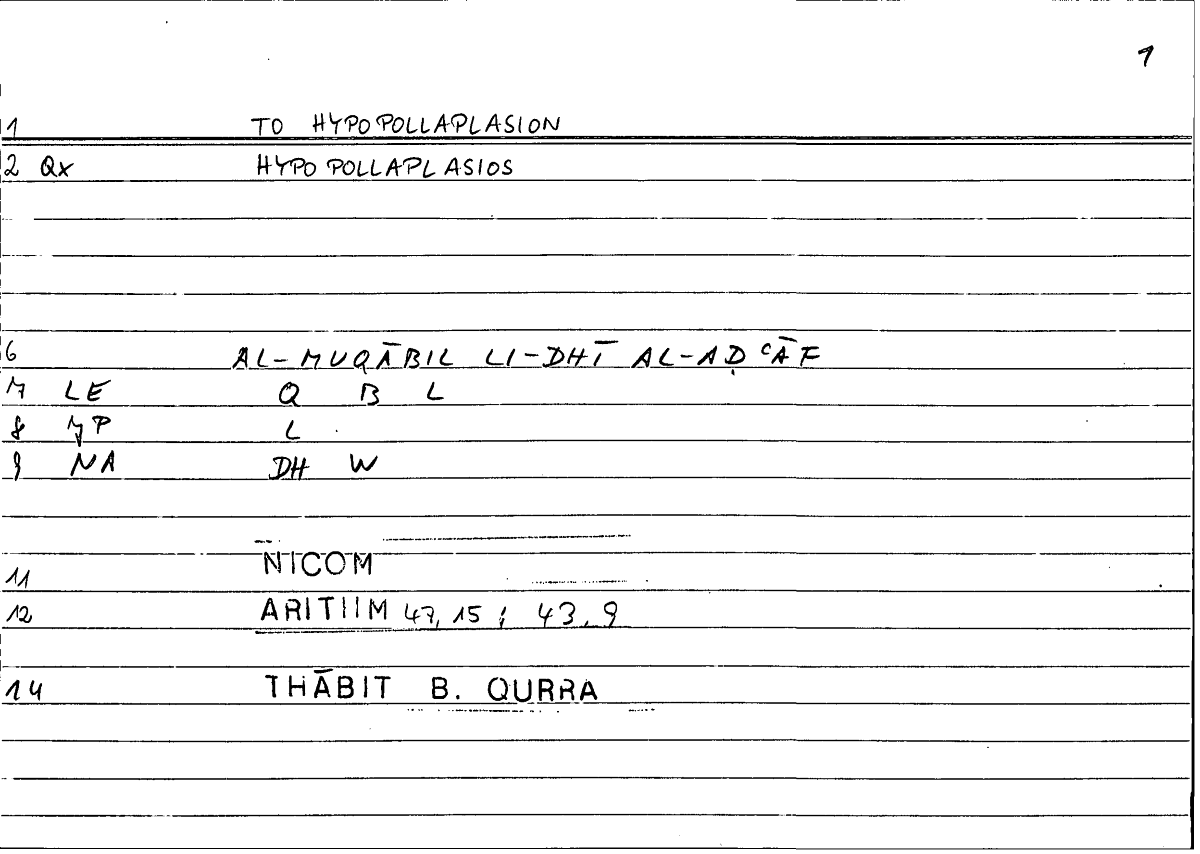 1
1 TO HYPOPOLLAPLASION
2 Qx HYPOPOLLAPLASIOS
6 AL-MUQĀBIL LI-DHĪ AL-AḌʿĀF
7 LE Q B L
8 JP L
9 NA DH W
11 NICOM
12 ARITIIM 47,15 ; 43,9
14 THĀBIT B. QURRA